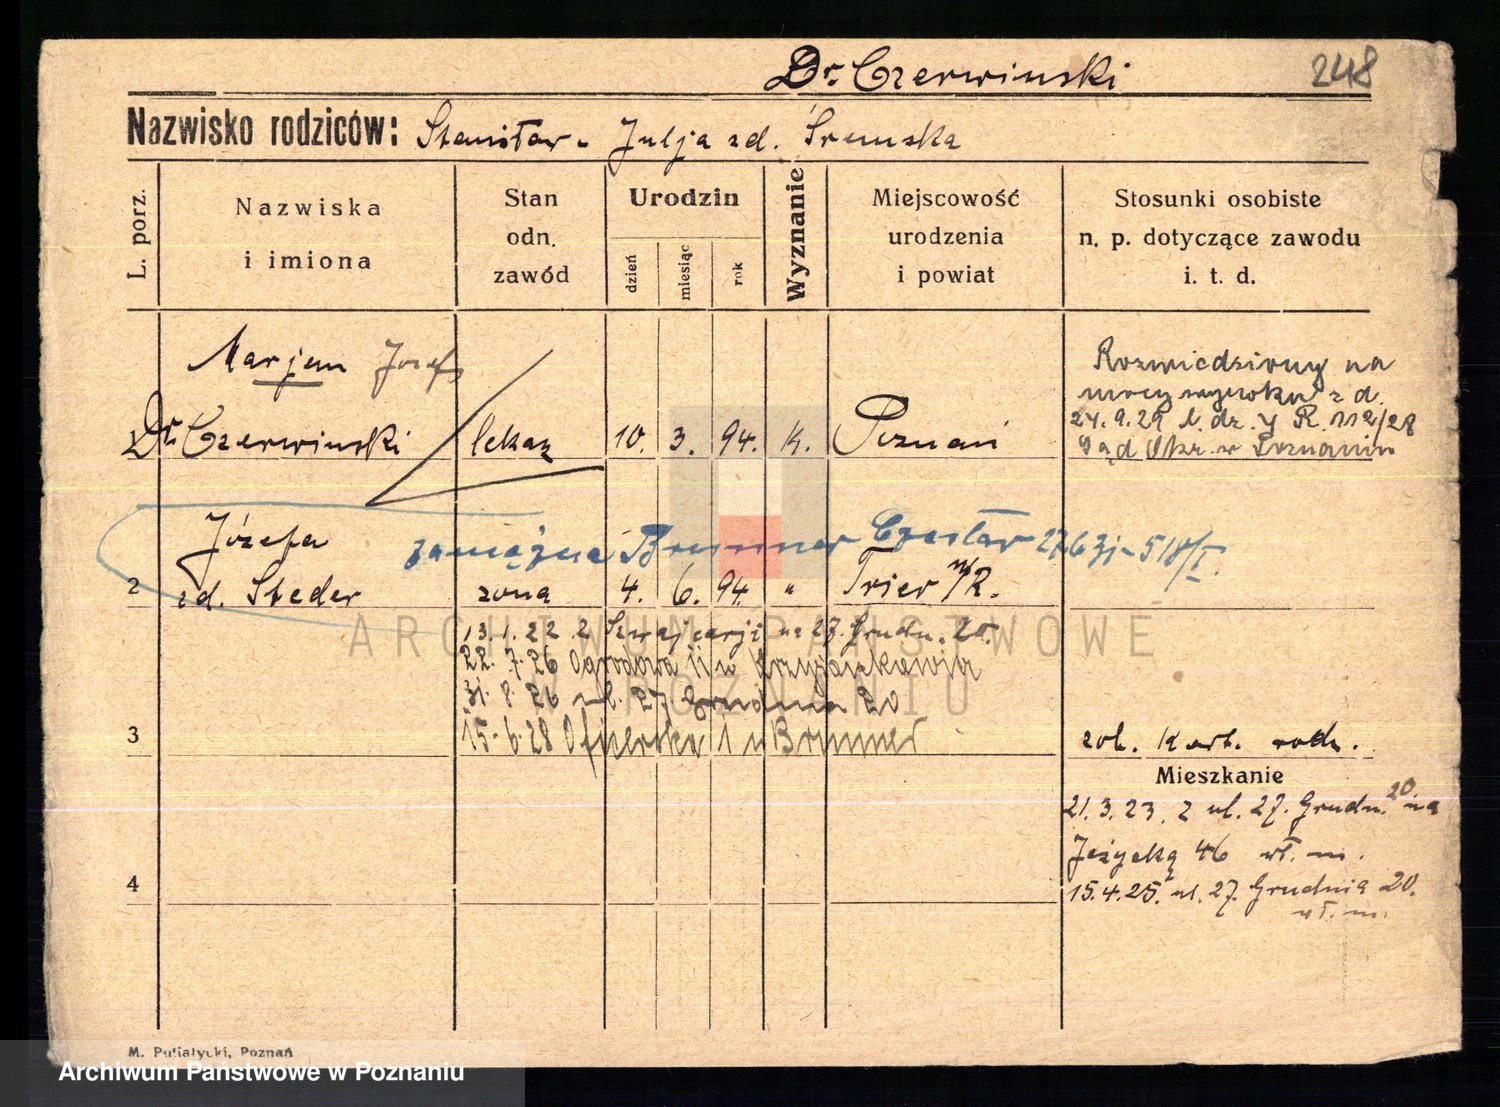 Dr. Czerwinski
248
Nazwisko rodziców: Stanisław - Julja zd. Śremska
L. porz.
Nazwiska
i imiona
Stan
odn.
zawód
Urodzin
dzień
miesiąc
rok
Wyznanie
Miejscowość
urodzenia
i powiat
Stosunki osobiste
n. p. dotyczące zawodu
i. t. d.
Marjan Józef
1 Dr. Czerwinski lekarz 10. 3. 94. K. Poznań
Rozwiedziony na
mocy wyroku z d.
24.9.29 l. dz. 4 R. 112/28
Sąd Okr. w Poznaniu
Józefa
zamężna Brunner Czesław 27.6.31 - 518/I.
2 zd. Steder żona 4. 6. 94. " Trier n/R.
13.1.22 z Szwajcarji na 27. Grudn. 20.
22.7.26 Ogrodowa 11 u
31.8.26 ul. 27 Grudnia 20
3 15.6.28 Oficerska 1 u Brunner
zob. Kart. rodz.
Mieszkanie
21.3.23. z ul. 27. Grudn. 20. na
Jeżycką 46 wł. m.
4 15.4.25. ul. 27. Grudnia 20.
wł. m.
M. Putiatycki, Poznań
ARCHIWUM PAŃSTWOWE
W POZNANIU
Archiwum Państwowe w Poznaniu